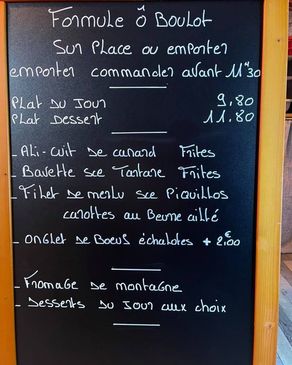 Formule Ô Boulot
Sur Place ou emporter
emporter commander avant 11H30
Plat du Jour 9,80
Plat Dessert 11.80
- Ali-cuit de canard Frites
- Bavette sce Tartare Frites
- Filet de merlu sce Piquillos
carottes au Beurre aillé
- onglet de Boeuf échalotes + 2€00
- Fromage de montagne
- Desserts du Jour aux choix